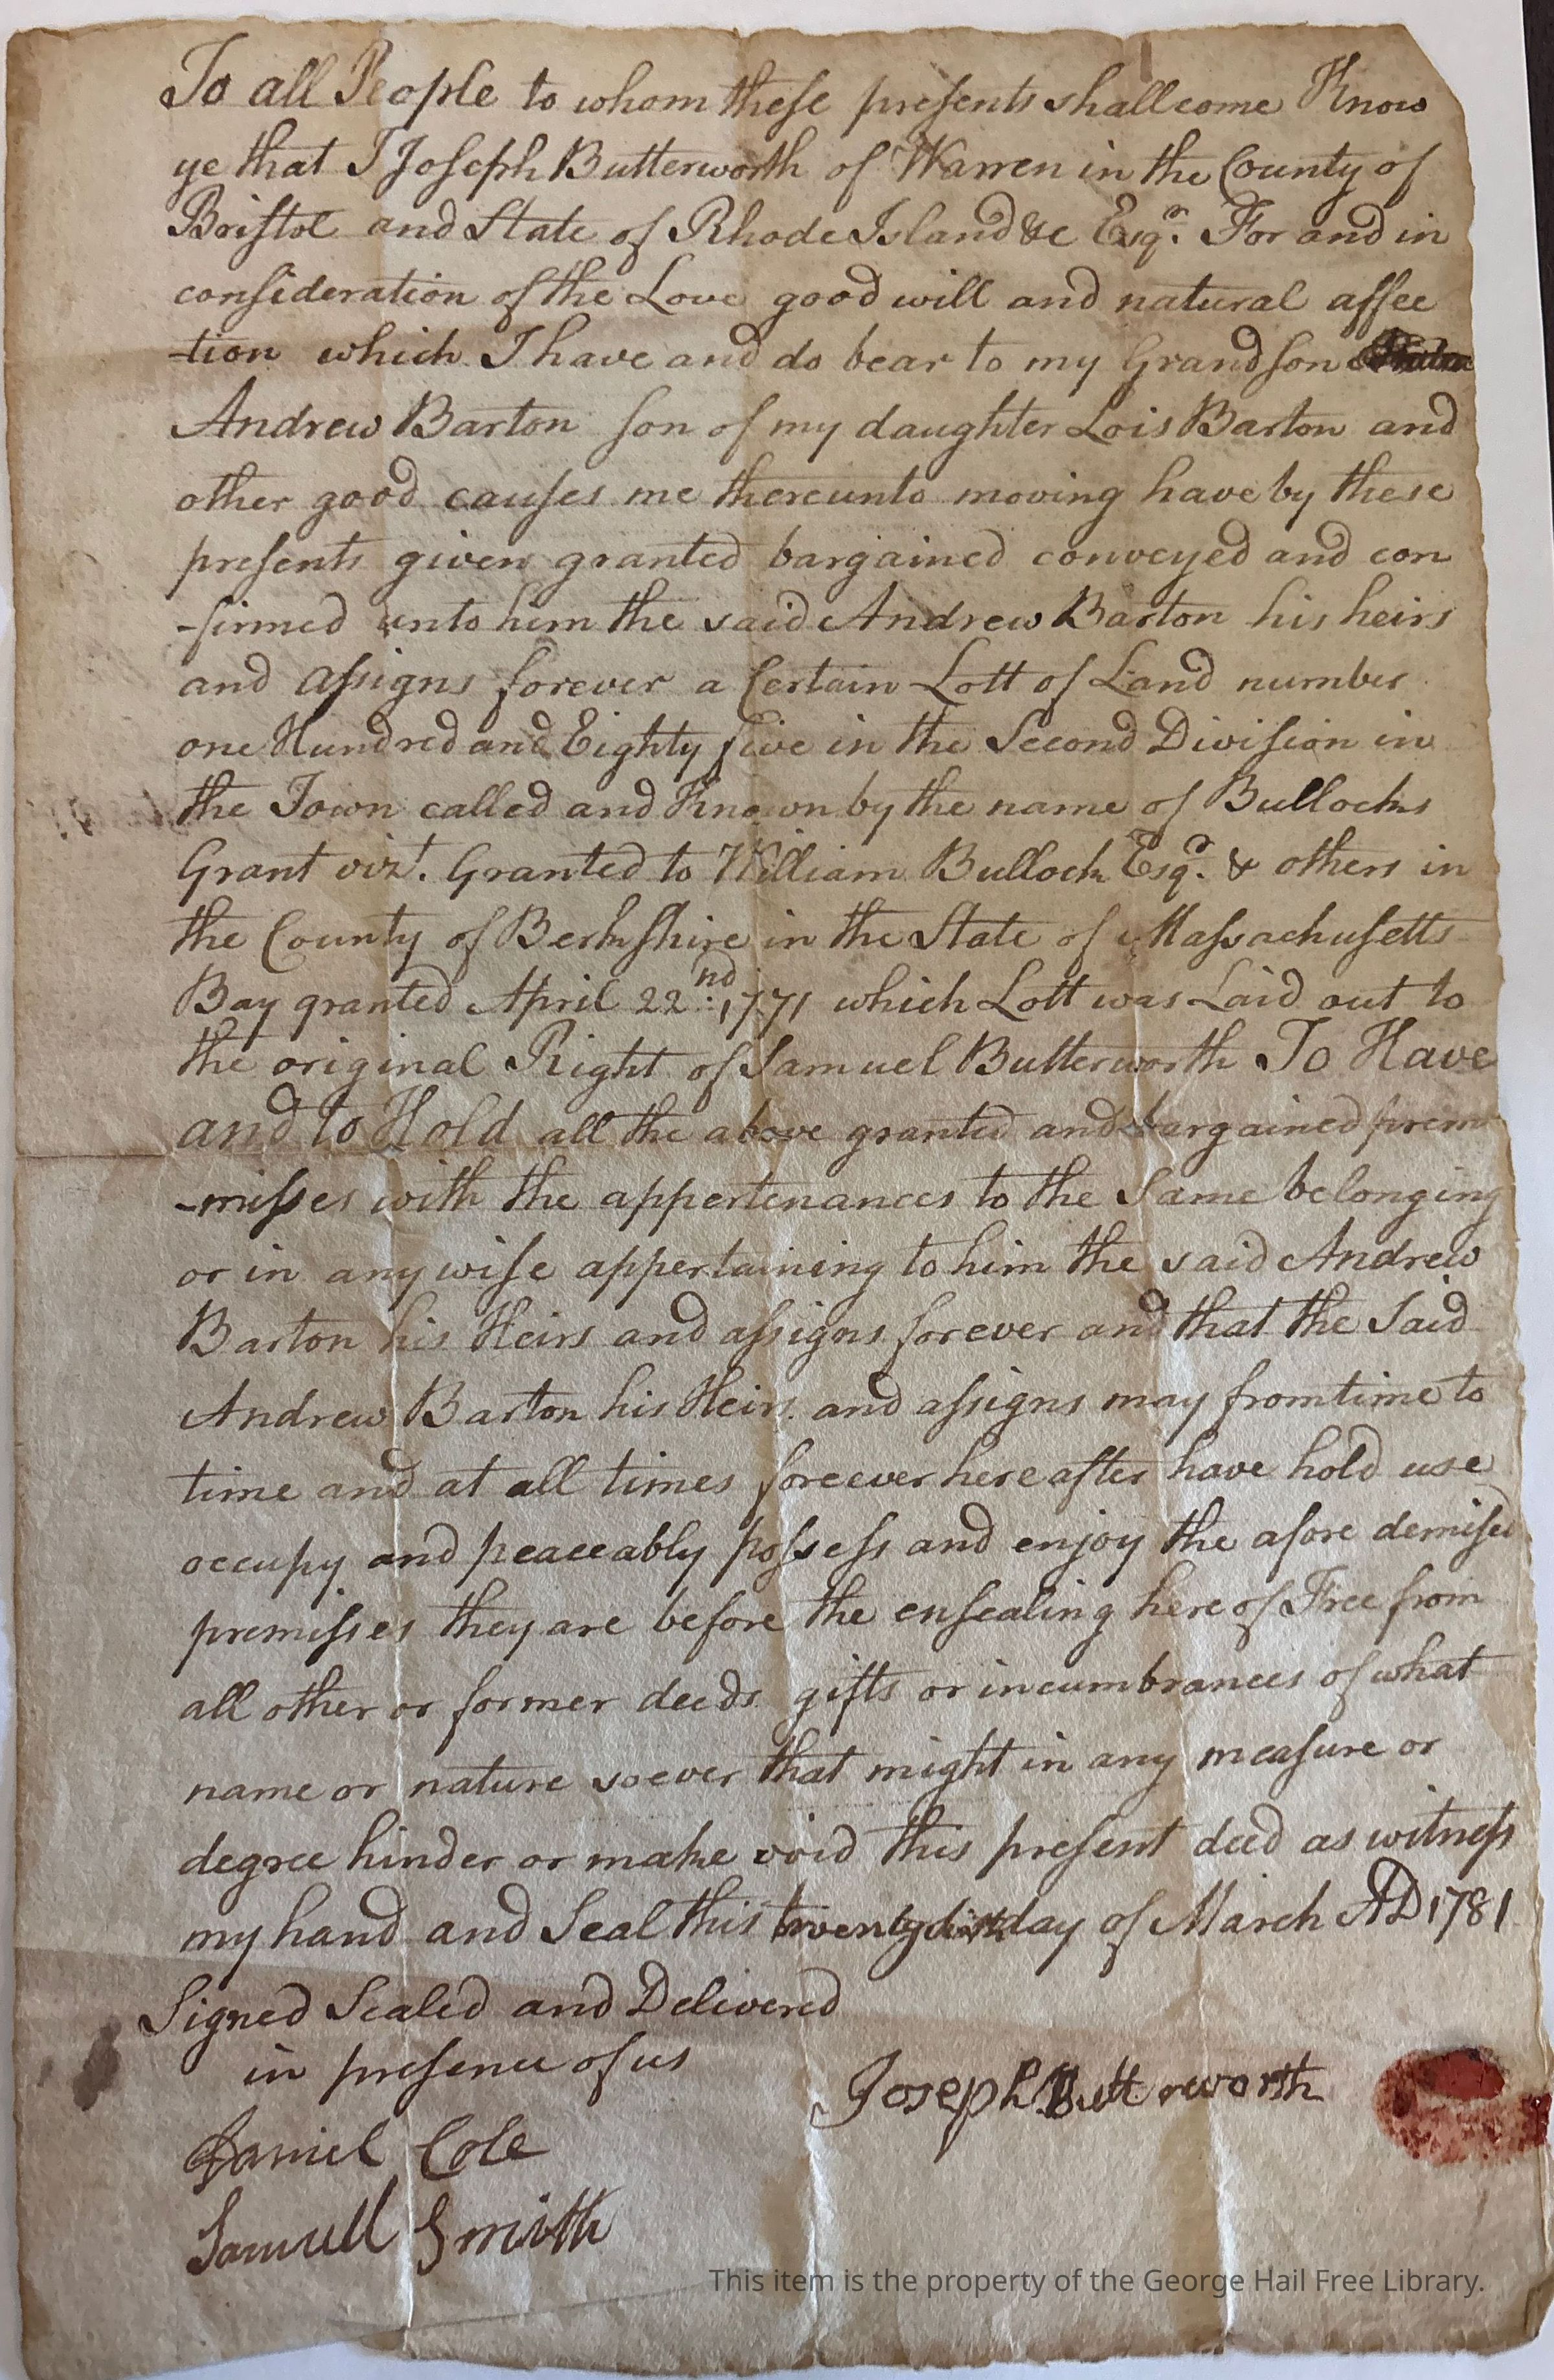 To all People to whom these presents shall come Know
ye that I Joseph Butterworth of Warren in the County of
Bristol and State of Rhode Island &c Esqr. For and in
consideration of the Love good will and natural affec
-tion which I have and do bear to my Grandson
Andrew Barton son of my daughter Lois Barton and
other good causes me thereunto moving have by these
presents given granted bargained conveyed and con
-firmed unto him the said Andrew Barton his heirs
and assigns forever a Certain Lott of Land number
one Hundred and Eighty five in the Second Division in
the Town called and Known by the name of Bullocks
Grant vizt. Granted to William Bullock Esqr. & others in
the County of Berkshire in the State of Massachusetts
Bay granted April 22nd: 1771 which Lott was Laid out to
the original Right of Samuel Butterworth To Have
and to Hold all the above granted and bargained prem
-misses with the appertenances to the Same belonging
or in any wise appertaining to him the said Andrew
Barton his Heirs and assigns forever and that the Said
Andrew Barton his Heirs and assigns may from time to
time and at all times foreever hereafter have hold use
occupy and peaceably possess and enjoy the afore demised
premisses they are before the ensealing hereof Free from
all other or former deeds gifts or incumbrances of what
name or nature soever that might in any measure or
degree hinder or make void this present deed as witness
my hand and Seal this day of March AD 1781
Signed Sealed and Delivered
in presence of us
Joseph Butterworth
Daniel Cole
Samuell Smith
This item is the property of the George Hail Free Library.